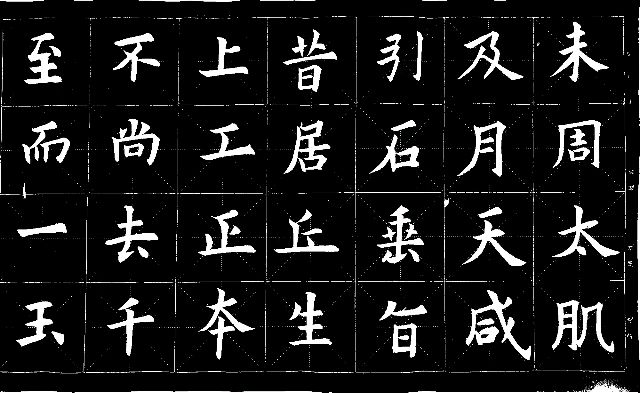 未周太肌
及月天咸
引石垂旨
昔居丘生
上工正本
不尚去千
至而一玉